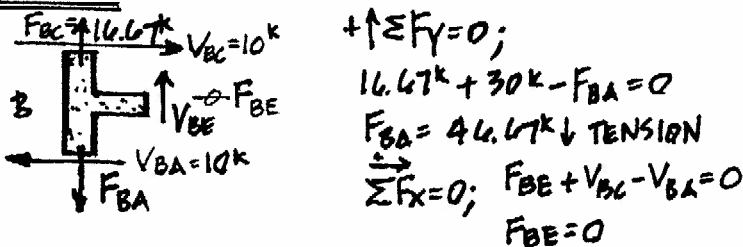 F_BC = 16.67ᵏ
V_BC = 10ᵏ
B
V_BE
0 F_BE
V_BA = 10ᵏ
F_BA
+↑ΣFy = 0;
16.67ᵏ + 30ᵏ - F_BA = 0
F_BA = 46.67ᵏ ↓ TENSION
+→ ΣFx = 0; F_BE + V_BC - V_BA = 0
F_BE = 0